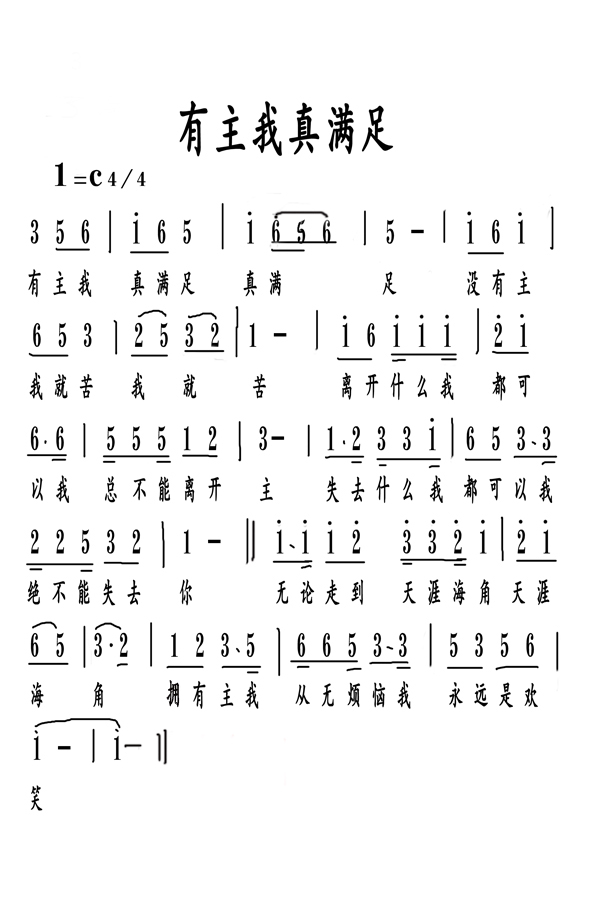 有主我真满足
1=C 4/4
3 5 6 | i 6 5 | i 6 5 6 | 5 - | i 6 i |
有主我 真满足 真满 足 没有主
6 5 3 | 2 5 3 2 | 1 - | i 6 i i i | 2̇ i
我就苦 我 就 苦 离开什么我 都可
6· 6 | 5 5 5 1 2 | 3 - | 1· 2 3 3 i | 6 5 3· 3
以我 总不能离开 主 失去什么我 都可以我
2 2 5 3 2 | 1 - || i· i i 2̇ 3̇ 3̇ 2̇ i | 2̇ i
绝不能失去 你 无论走到 天涯海角 天涯
6 5 | 3· 2 | 1 2 3· 5 | 6 6 5 3· 3 | 5 3 5 6 |
海 角 拥有主我 从无烦恼我 永远是欢
i - | i - ||
笑